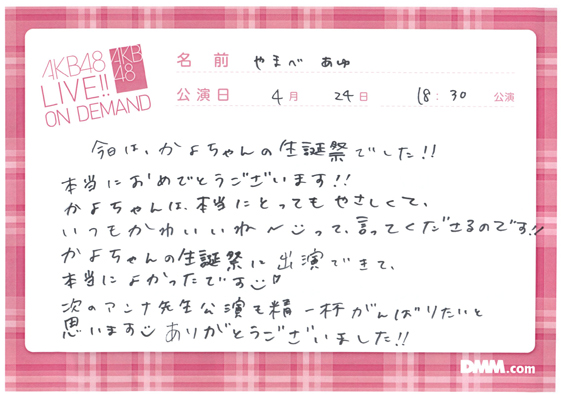 AKB48
LIVE!!
ON DEMAND
AKB
48
名前 やまべ あゆ
公演日 4月 24日 18:30 公演
今日は、かよちゃんの生誕祭でした!!
本当におめでとうございます!!
かよちゃんは、本当にとってもやさしくて、
いつもかわいいね〜って、言ってくださるのです!!
かよちゃんの生誕祭に出演できて、
本当によかったです♡
次のアンナ先生公演も精一杯がんばりたいと
思います ありがとうございました!!
DMM.com